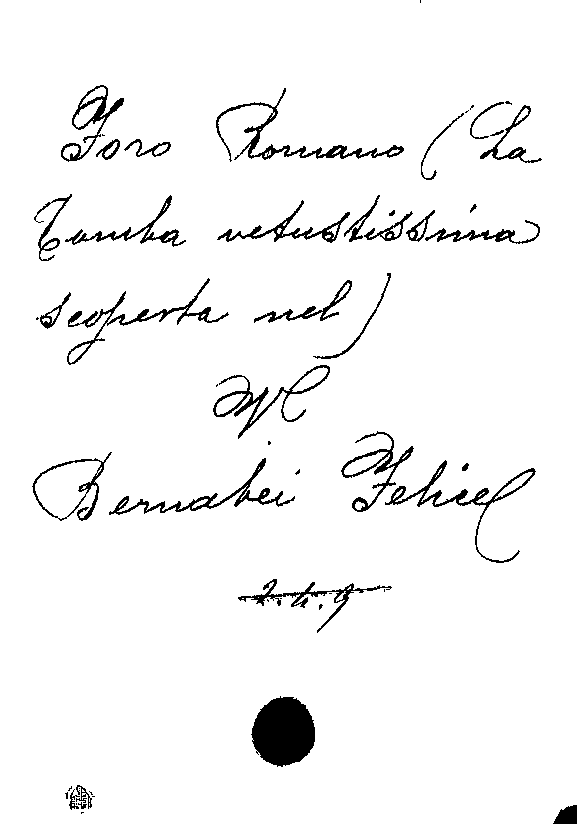 Foro Romano (La
Tomba vetustissima
scoperta nel)
V
Bernabei Felice
2.4.9